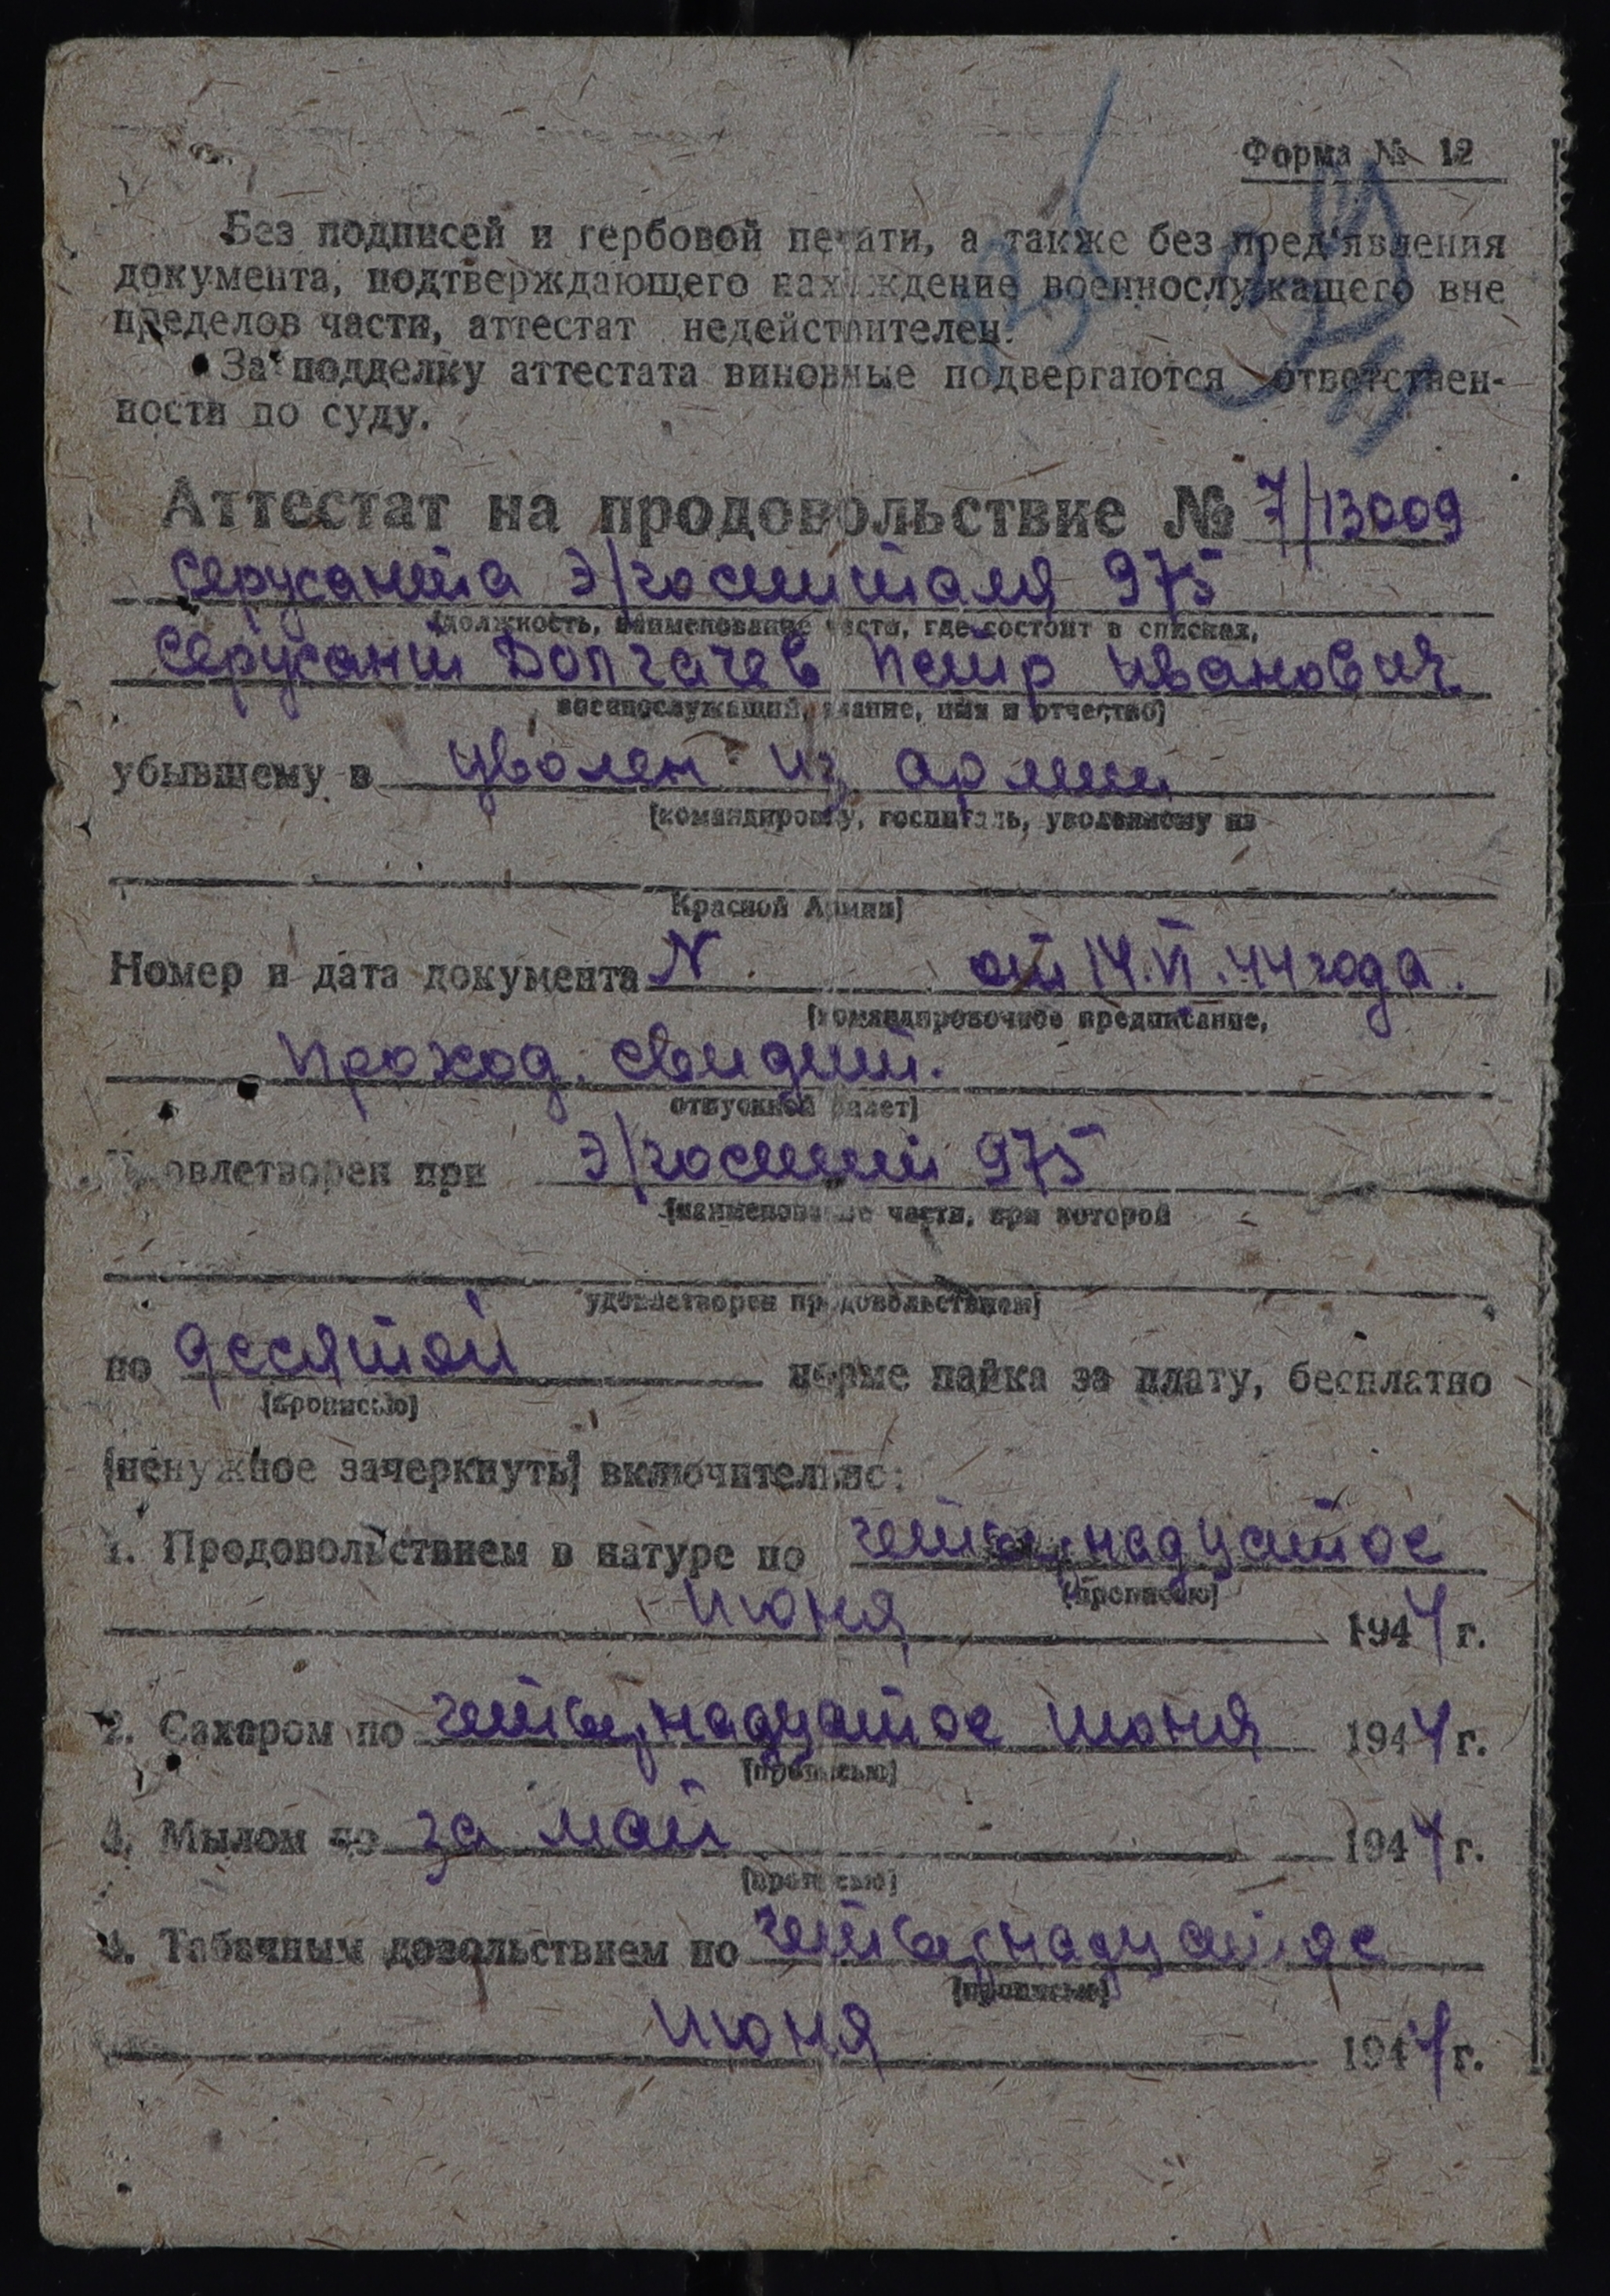 Форма № 12
Без подписей и гербовой печати, а также без пред'явления
документа, подтверждающего нахождение военнослужащего вне
пределов части, аттестат недействителен.
За подделку аттестата виновные подвергаются ответствен-
ности по суду.
Аттестат на продовольствие № 7/13009
сержанта э/госпиталя 975
(должность, наименование части, где состоит в списках,
сержант Долгачев Петр Иванович
военнослужащий, звание, имя и отчество)
убывшему в уволен из армии
(командировку, госпиталь, уволенному из
Красной Армии)
Номер и дата документа N от 14.VI.44 года.
(командировочное предписание,
проход. свидет.
отпускной билет)
Удовлетворен при э/госпит 975
(наименование части, при которой
удовлетворен продовольствием)
по десятой норме пайка за плату, бесплатно
(прописью)
(ненужное зачеркнуть) включительно:
1. Продовольствием в натуре по четырнадцатое
(прописью)
июня 1944 г.
2. Сахаром по четырнадцатое июня 1944 г.
(прописью)
3. Мылом по за май 1944 г.
(прописью)
4. Табачным довольствием по четырнадцатое
(прописью)
июня 1944 г.